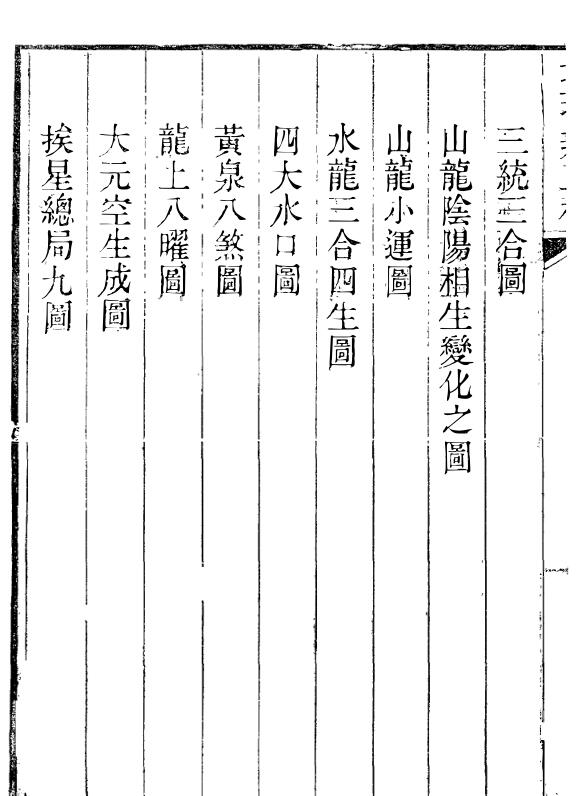 三統三合圖
山龍陰陽相生變化之圖
山龍小運圖
水龍三合四生圖
四大水口圖
黃泉八煞圖
龍上八曜圖
大元空生成圖
挨星總局九圖